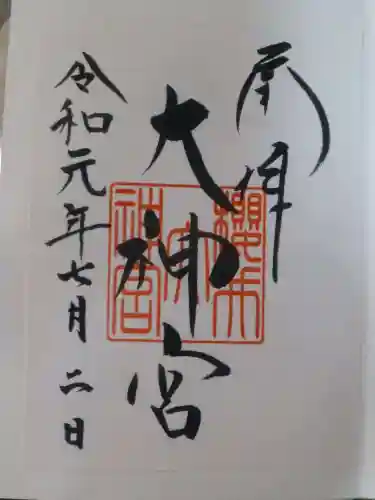 奉拝
大神宮
令和元年七月二日
櫻木
神宮